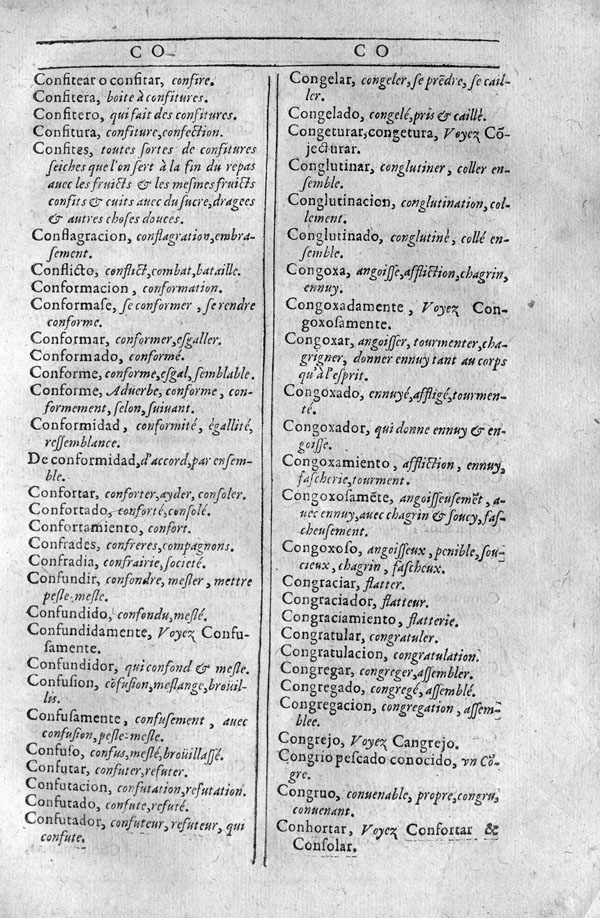 CO
Confitear o confitar, confire.
Confitera, boite à confitures.
Confitero, qui fait des confitures.
Confitura, confiture, confection.
Confites, toutes ſortes de confitures
ſeiches que l'on ſert à la fin du repas
avec les fruicts & les meſmes fruicts
confits & cuits avec du ſucre, dragees
& autres choſes douces.
Conflagracion, conflagration, embra-
ſement.
Conflicto, conflict, combat, bataille.
Conformacion, conformation.
Conformaſe, ſe conformer, ſe rendre
conforme.
Conformar, conformer, eſgaller.
Conformado, conformé.
Conforme, conforme, eſgal, ſemblable.
Conforme, Aduerbe, conforme, con-
formement, ſelon, ſuiuant.
Conformidad, conformité, égallité,
reſſemblance.
De conformidad, d'accord, par enſem-
ble.
Confortar, conforter, ayder, conſoler.
Confortado, conforté, conſolé.
Confortamiento, confort.
Confrades, confreres, compagnons.
Confradia, confrairie, ſocieté.
Confundir, confondre, meſler, mettre
peſle-meſle.
Confundido, confondu, meſlé.
Confundidamente, Voyez Confu-
ſamente.
Confundidor, qui confond & meſle.
Confuſion, cõfuſion, meſlange, broüil-
lis.
Confuſamente, confuſement, avec
confuſion, peſle-meſle.
Confuſo, confus, meſlé, broüillaſſé.
Confutar, confuter, refuter.
Confutacion, confutation, refutation.
Confutado, confuté, refuté.
Confutador, confuteur, refuteur, qui
confute.
CO
Congelar, congeler, ſe prẽdre, ſe cail-
ler.
Congelado, congelé, pris & caillé.
Congeturar, congetura, Voyez Cõ-
jecturar.
Conglutinar, conglutiner, coller en-
ſemble.
Conglutinacion, conglutination, col-
lement.
Conglutinado, conglutiné, collé en-
ſemble.
Congoxa, angoiſſe, affliction, chagrin,
ennuy.
Congoxadamente, Voyez Con-
goxoſamente.
Congoxar, angoiſſer, tourmenter, cha-
grigner, donner ennuy tant au corps
qu'à l'eſprit.
Congoxado, ennuyé, affligé, tourmen-
té.
Congoxador, qui donne ennuy & en-
goiſſe.
Congoxamiento, affliction, ennuy,
faſcherie, tourment.
Congoxoſamẽte, angoiſſeuſemẽt, a-
uec ennuy, auec chagrin & ſoucy, faſ-
cheuſement.
Congoxoſo, angoiſſeux, penible, ſou-
cieux, chagrin, faſcheux.
Congraciar, flatter.
Congraciador, flatteur.
Congraciamiento, flatterie.
Congratular, congratuler.
Congratulacion, congratulation.
Congregar, congreger, aſſembler.
Congregado, congregé, aſſemblé.
Congregacion, congregation, aſſem-
blee.
Congrejo, Voyez Cangrejo.
Congrio peſcado conocido, vn Cõ-
gre.
Congruo, conuenable, propre, congru,
conuenant.
Conhortar, Voyez Confortar &
Conſolar.